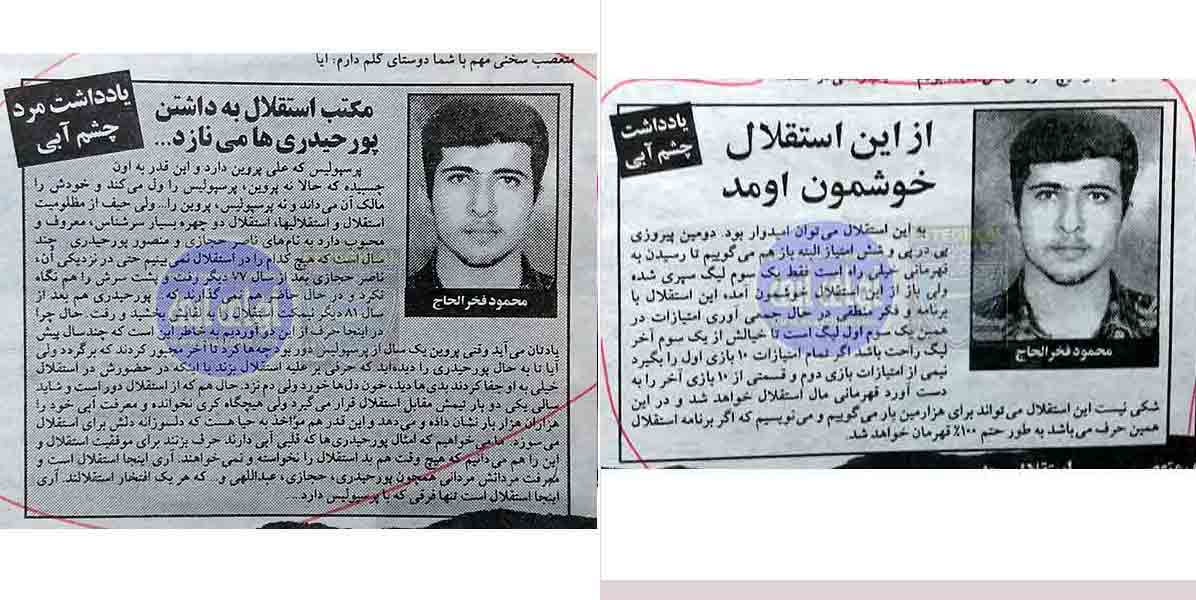 متعصب سخنی مهم با شما دوستای گلم دارم: آیا
یادداشت مرد
چشم آبی
مکتب استقلال به داشتن
پورحیدری ها می نازد...
محمود فخرالحاج
پرسپولیس که علی پروین دارد و این قدر به اون
چسبیده که حالا نه پروین، پرسپولیس را ول می‌کند و خودش را
مالک آن می‌داند و نه پرسپولیس، پروین را... ولی حیف از مظلومیت
استقلال و استقلالیها، استقلال دو چهره بسیار سرشناس، معروف و
محبوب دارد به نام‌های ناصر حجازی و منصور پورحیدری چند
سال است که هیچ کدام را در استقلال نمی بینیم حتی در نزدیکی آن،
ناصر حجازی بعد از سال ۷۷ دیگر رفت و پشت سرش را هم نگاه
نکرد و در حال حاضر هم نمی گذارند که پورحیدری هم بعد از
سال ۸۱ دیگر نیمکت استقلال را به لقایش بخشید و رفت. حال چرا
در اینجا حرف از این دو آوردیم به خاطر این است که چندسال پیش
یادتان می‌آید وقتی پروین یک سال از پرسپولیس دور بود چه‌ها کرد تا آخر مجبور کردند که برگردد ولی
آیا تا به حال پورحیدری را دیده‌اید که حرفی بر علیه استقلال بزند با که در حضورش در استقلال
خیلی به او جفا کردند بدی‌ها دید، خون دل‌ها خورد ولی دم نزد. حال هم که از استقلال دور است و شاید
سالی یکی دو بار تیمش مقابل استقلال قرار می‌گیرد ولی هیچگاه کری نخوانده و معرفت آبی خود را
هزاران هزار بار نشان داده و می‌دهد و این قدر هم مواخذ به حیا هست که دلسوزانه دلش برای استقلال
می‌سوزد. ما نمی‌خواهیم که امثال پورحیدری‌ها که قلبی آبی دارند حرف بزنند برای موفقیت استقلال و
این را هم می‌دانیم که هیچ وقت هم بد استقلال را نخواسته و نمی‌خواهند. آری اینجا استقلال است و
معرفت مردانش مردانی همچون پورحیدری، حجازی، عبداللهی و... که هر یک افتخار استقلالند. آری
اینجا استقلال است تنها فرقی که با پرسپولیس دارد...
یادداشت
چشم آبی
از این استقلال
خوشمون اومد
محمود فخرالحاج
به این استقلال می‌توان امیدوار بود. دومین پیروزی
پی در پی و شش امتیاز البته باز هم می‌گوییم تا رسیدن به
قهرمانی خیلی راه است فقط یک سوم لیگ سپری شده
ولی باز از این استقلال خوشمون آمده این استقلال با
برنامه و فکر منطقی در حال جمع آوری امتیازات در
همین یک سوم اول لیگ است تا خیالش از یک سوم آخر
لیگ راحت باشد اگر تمام امتیازات ۱۰ بازی اول را بگیرد
نیمی از امتیازات بازی دوم و قسمتی از ۱۰ بازی آخر را به
دست آورد قهرمانی مال استقلال خواهد شد و در این
شکی نیست این استقلال می‌تواند برای هزارمین بار می‌گوییم و می‌نویسیم که اگر برنامه استقلال
همین حرف می‌باشد به طور حتم ۱۰۰٪ قهرمان خواهد شد.